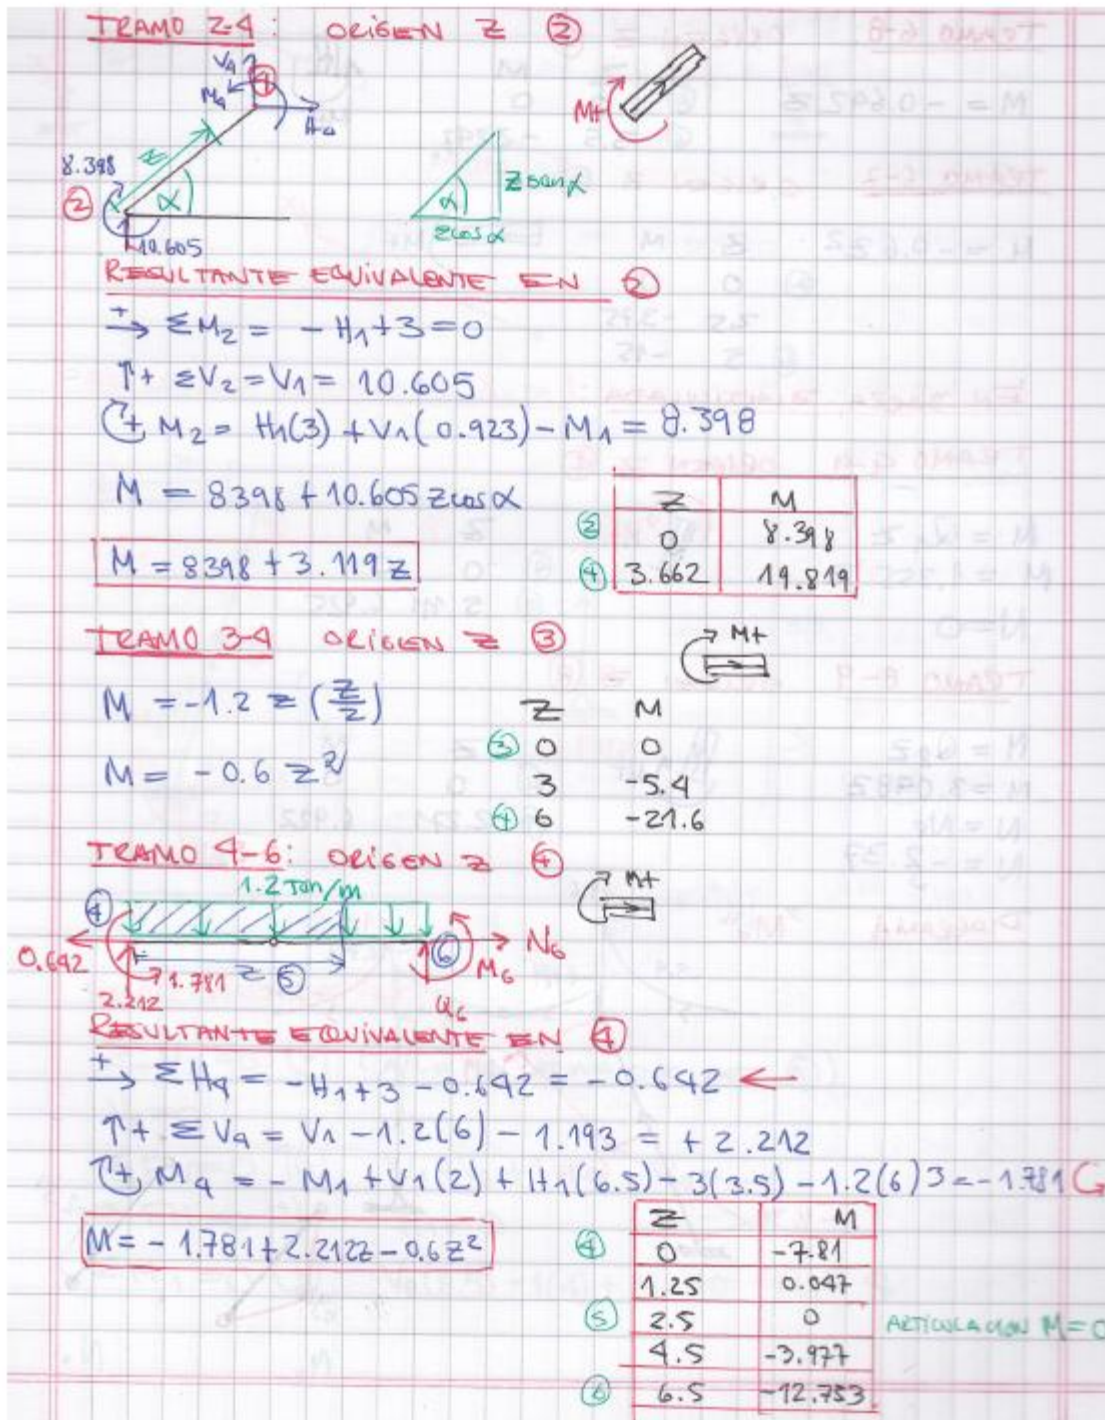 TRAMO 2-4: ORIGEN Z ②
V4
④
M4
H4
M+
Z
8.398
②
α
α
Z senα
Zcosα
10.605
RESULTANTE EQUIVALENTE EN ②
+→ ΣM2 = -H1+3=0
↑+ ΣV2=V1= 10.605
+ M2= H1(3)+V1(0.923)-M1= 8.398
M = 8398+10.605zcosα
M = 8398+3.119z
Z M
② 0 8.398
④ 3.662 19.819
TRAMO 3-4 ORIGEN Z ③
M+
M = -1.2 z (z/2)
M = -0.6 z²
Z M
③ 0 0
3 -5.4
④ 6 -21.6
TRAMO 4-6: ORIGEN Z ④
1.2 Ton/m
M+
④
0.642
1.781
Z
⑤
⑥
M6
N6
2.212
Q6
RESULTANTE EQUIVALENTE EN ④
+→ ΣH4 = -H1+3-0.642 = -0.642 ←
↑+ ΣV4 = V1-1.2(6)-1.193 = +2.212
+ M4 = -M1+V1(2)+H1(6.5)-3(3.5)-1.2(6)3=-1.781
M=-1.781+2.212z-0.6z²
Z M
④ 0 -7.81
1.25 0.047
⑤ 2.5 0 ARTICULACION M=0
4.5 -3.977
⑥ 6.5 -12.753